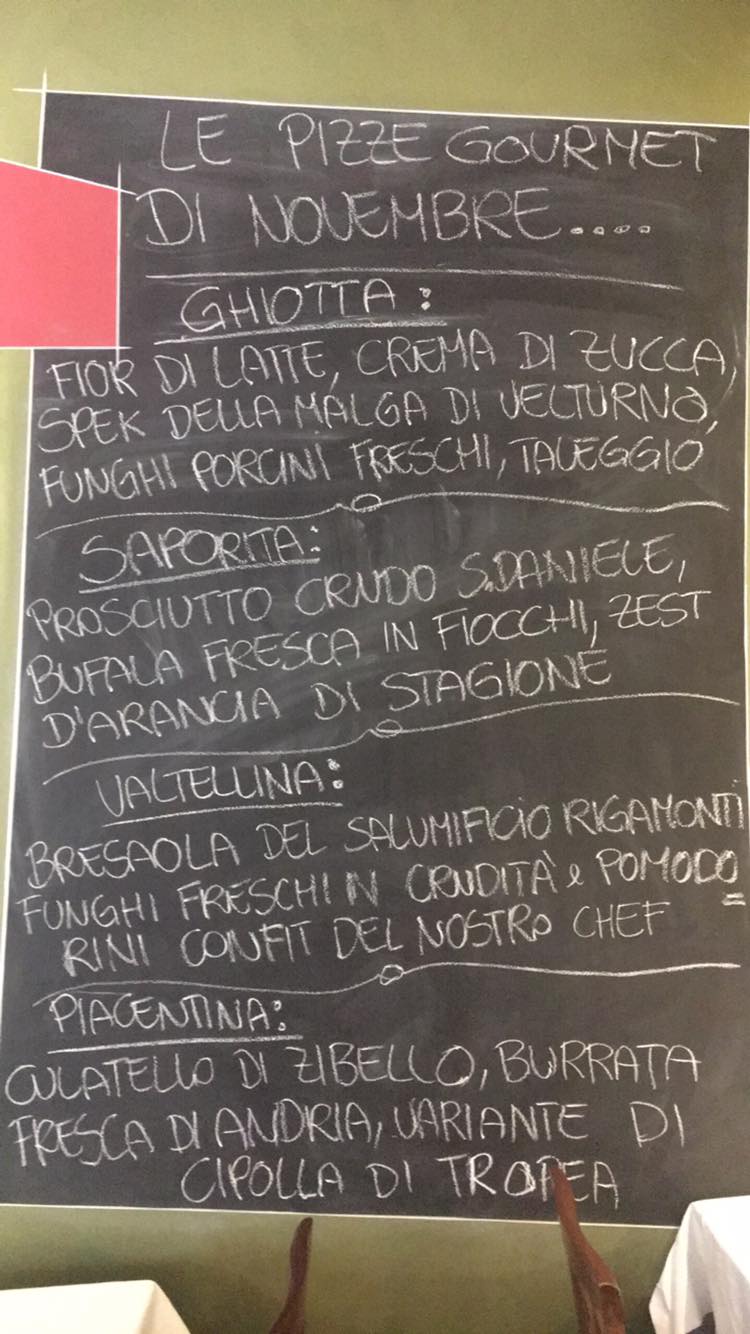 LE PIZZE GOURMET
DI NOVEMBRE....
GHIOTTA:
FIOR DI LATTE, CREMA DI ZUCCA,
SPEK DELLA MALGA DI VELTURNO,
FUNGHI PORCINI FRESCHI, TALEGGIO
SAPORITA:
PROSCIUTTO CRUDO S.DANIELE,
BUFALA FRESCA IN FIOCCHI, ZEST
D'ARANCIA DI STAGIONE
VALTELLINA:
BRESAOLA DEL SALUMIFICIO RIGAMONTI
FUNGHI FRESCHI IN CRUDITÀ e POMODO
RINI CONFIT DEL NOSTRO CHEF
PIACENTINA:
CULATELLO DI ZIBELLO, BURRATA
FRESCA DI ANDRIA, VARIANTE DI
CIPOLLA DI TROPEA